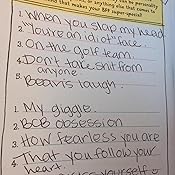 or anything else that comes to
mind that makes your BFF super-special!
1. When you slap my head
2. "You're an idiot" face.
3. On the golf team.
4. Don't take shit from
anyone.
5. Beavis laugh.
1. My giggle.
2. BCB obsession
3. How fearless you are
4. That you follow your
heart.
yourself